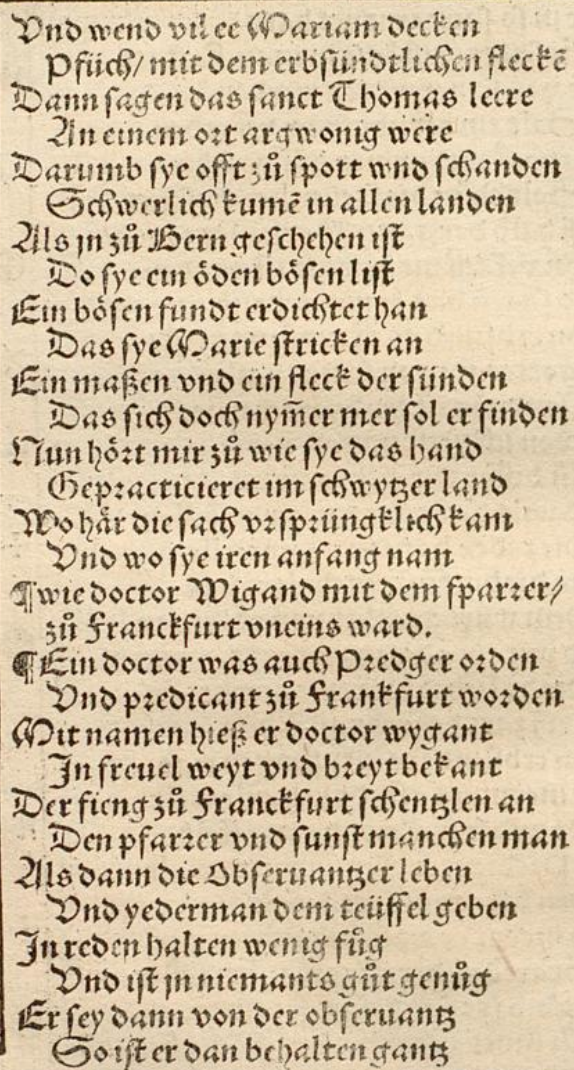 Vnd wend vil ee Mariam decken
Pfüch/ mit dem erbsündtlichen fleckẽ
Dann sagen das sanct Thomas leere
An einem ort argwonig were
Darumb sye offt zů spott wnd schanden
Schwerlich kumẽ in allen landen
Als jn zů Bern geschehen ist
Do sye ein öden bösen list
Ein bösen fundt erdichtet han
Das sye Marie stricken an
Ein maßen vnd ein fleck der sünden
Das sich doch nym̃er mer sol er finden
Nun hört mir zů wie sye das hand
Gepracticieret im schwytzer land
Wo här die sach vrsprüngklich kam
Vnd wo sye iren anfang nam
¶wie doctor Wigand mit dem fparrer/
zů Franckfurt vneins ward.
¶Ein doctor was auch Predger orden
Vnd predicant zů Frankfurt worden
Mit namen hieß er doctor wygant
In freuel weyt vnd breyt bekant
Der fieng zů Franckfurt schentzlen an
Den pfarrer vnd sunst manchen man
Als dann die Obseruantzer leben
Vnd yederman dem teüffel geben
In reden halten wenig fůg
Vnd ist jn niemants gůt genůg
Er sey dann von der obseruantz
So ist er dan behalten gantz